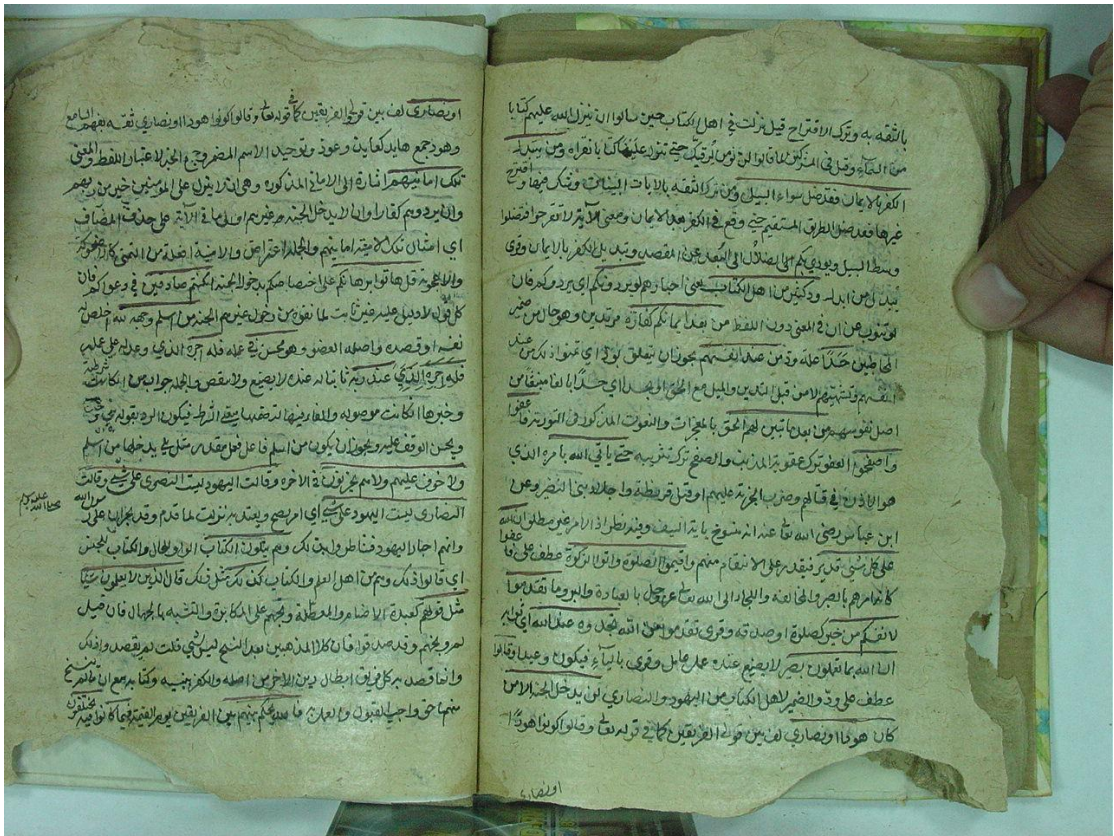 بالثقه به وترك الاقتراح قيل نزلت في اهل الكتاب حين سالوا ان ينزل الله عليهم كتابا
من السماء وقيل في المشركين لما قالوا لن نؤمن لرقيك حتي تنزل علينا كتابا نقراه ومن يتبدل
الكفر بالايمان فقد ضل سواء السبيل ومن ترك الثقه بالايات البينات وشك فيها واقترح
غيرها فقد ضل الطريق المستقيم حتي وقع في الكفر بعد الايمان ومعني الآية لا تقترحوا فتضلوا
وسط السبيل ويودي بكم الضلال الي البعد عن المقصد وتبديل الكفر بالايمان وقرئ
يبدل من ابدل ود كثير من اهل الكتاب يعني احبارهم لو يردونكم اي يردوكم فان
لو تنوب عن ان في المعني دون اللفظ من بعد ايمانكم كفارا مرتدين وهو حال من ضمير
المخاطبين حسدا علة ود من عند انفسهم يجوز ان يتعلق بود اي تمنوا ذلك من عند
انفسهم وتشهيهم لا من قبل التدين والميل مع الحق او بحسدا اي حسدا بالغا منبعثا من
اصل نفوسهم من بعد ما تبين لهم الحق بالمعجزات والنعوت المذكورة في التورية فاعفوا
واصفحوا العفو ترك عقوبة المذنب والصفح ترك تثريبه حتي ياتي الله بامره الذي
هو الاذن في قتالهم وضرب الجزية عليهم او قتل قريظة واجلاء بني النضير وعن
ابن عباس رضي الله تعا عنه انه منسوخ باية السيف وفيه نظر اذ الامر غير مطلق ان الله
علي كل شئ قدير فيقدر علي الانتقام منهم واقيموا الصلوة واتوا الزكوة عطف علي فاعفوا
كانه امرهم بالصبر والمخالفه واللجاء الي الله تعا عز وجل بالعبادة والبر وما تقدموا
لانفسكم من خير كصلوة او صدقه وقرئ تقدموا من اقدم تجدوه عند الله اي ثوابه
ان الله بما تعملون بصير لا يضيع عنده عمل عامل وقرئ بالياء فيكون وعيدا وقالوا
عطف علي ود والضمير لاهل الكتاب من اليهود والنصاري لن يدخل الجنة الا من
كان هودا او نصاري لف بين قولي الفريقين كما في قوله تعا وقالوا كونوا هودا
او نصاري
او نصاري لف بين قولي الفريقين كما في قوله تعا وقالوا كونوا هودا او نصاري ثقه بفهم السامع
وهود جمع هايد كعايد وعوذ وتوحيد الاسم المضمر وجمع الخبر لاعتبار اللفظ والمعني
تلك امانيهم اشارة الي الاماني المذكورة وهي ان لا ينزل علي المومنين خير من ربهم
وان يردوهم كفارا وان لا يدخل الجنة غيرهم او الي ما في الآية علي حذف المضاف
اي امثال تلك الامنية امانيهم والجملة اعتراض والامنية افعولة من التمني كالاضحوكة
والاعجوبة قل هاتوا برهانكم علي اختصاصكم بدخول الجنة ان كنتم صادقين في دعواكم فان
كل قول لا دليل عليه غير ثابت بلي اثبات لما نفوه من دخول غيرهم الجنة من اسلم وجهه لله اخلص له
نفسه او قصده واصله العضو وهو محسن في عمله فله اجره الذي وعد له علي عمله
عند ربه ثابتا له عنده لا يضيع ولا ينقص والجملة جواب من ان كانت شرطية
وخبرها ان كانت موصولة والفاء فيها لتضمنها معني الشرط فيكون الرد بقوله بلي وحده
ويحسن الوقف عليه ويجوز ان يكون من اسلم فاعل فعل مقدر مثل بلي يدخلها من اسلم
ولا خوف عليهم ولا هم يحزنون في الاخرة وقالت اليهود ليست النصري علي شئ وقالت
النصاري ليست اليهود علي شئ اي امر يصح ويعتد به نزلت لما قدم وفد نجران علي رسول الله
صلي الله عليه وسلم
واتاهم احبار اليهود فتناظروا بذلك وهم يتلون الكتاب الواو للحال والكتاب للجنس
اي قالوا ذلك وهم من اهل العلم والكتاب كذلك مثل ذلك قال الذين لا يعلمون شيئا
مثل قولهم كعبدة الاصنام والمعطلة وبخهم علي المكابرة والتشبه بالجهال فان قيل
لم وبخهم وقد صدقوا فان كلا الدينين بعد النسخ ليس بشئ قلت لم يقصدوا ذلك
وانما قصد به كل فريق ابطال دين الاخر من اصله والكفر بنبيه وكتابه مع ان ما لم ينسخ
منهما حق واجب القبول والعمل به فالله يحكم بينهم بين الفريقين يوم القيمة فيما كانوا فيه يختلفون